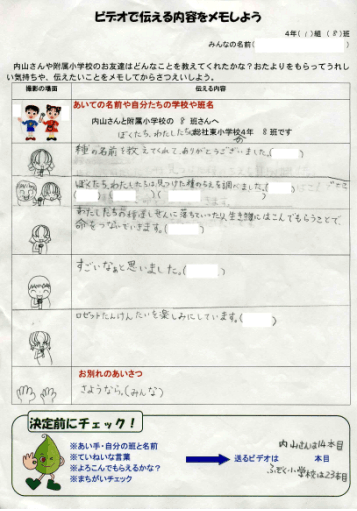 ビデオで伝える内容をメモしよう
4年(1)組 (8)班
みんなの名前(
内山さんや附属小学校のお友達はどんなことを教えてくれたかな?おたよりをもらってうれし
い気持ちや、伝えたいことをメモしてからさつえいしよう。
撮影の場面
伝える内容
あいての名前や自分たちの学校や班名
内山さんと附属小学校の 8 班さんへ
ぼくたち、わたしたち、総社東小学校4年 8 班です
種の名前を教えてくれて、ありがとうございました。( )
ぼくたち、わたしたちは、見つけた種のちえを調べました。( )
( )( )( )
わたしたち
に落ちていたり、生き物にはこんでもらうことで、
命をつないでいきます。( )
すごいなぁと思いました。( )
ロゼットたんけんたいを楽しみにしています。( )
お別れのあいさつ
さようなら。(みんな)
決定前にチェック!
※あい手・自分の班と名前
※ていねいな言葉
※よろこんでもらえるかな?
※まちがいチェック
送るビデオは 本目
内山さんは14本目
ふぞく小学校は23本目